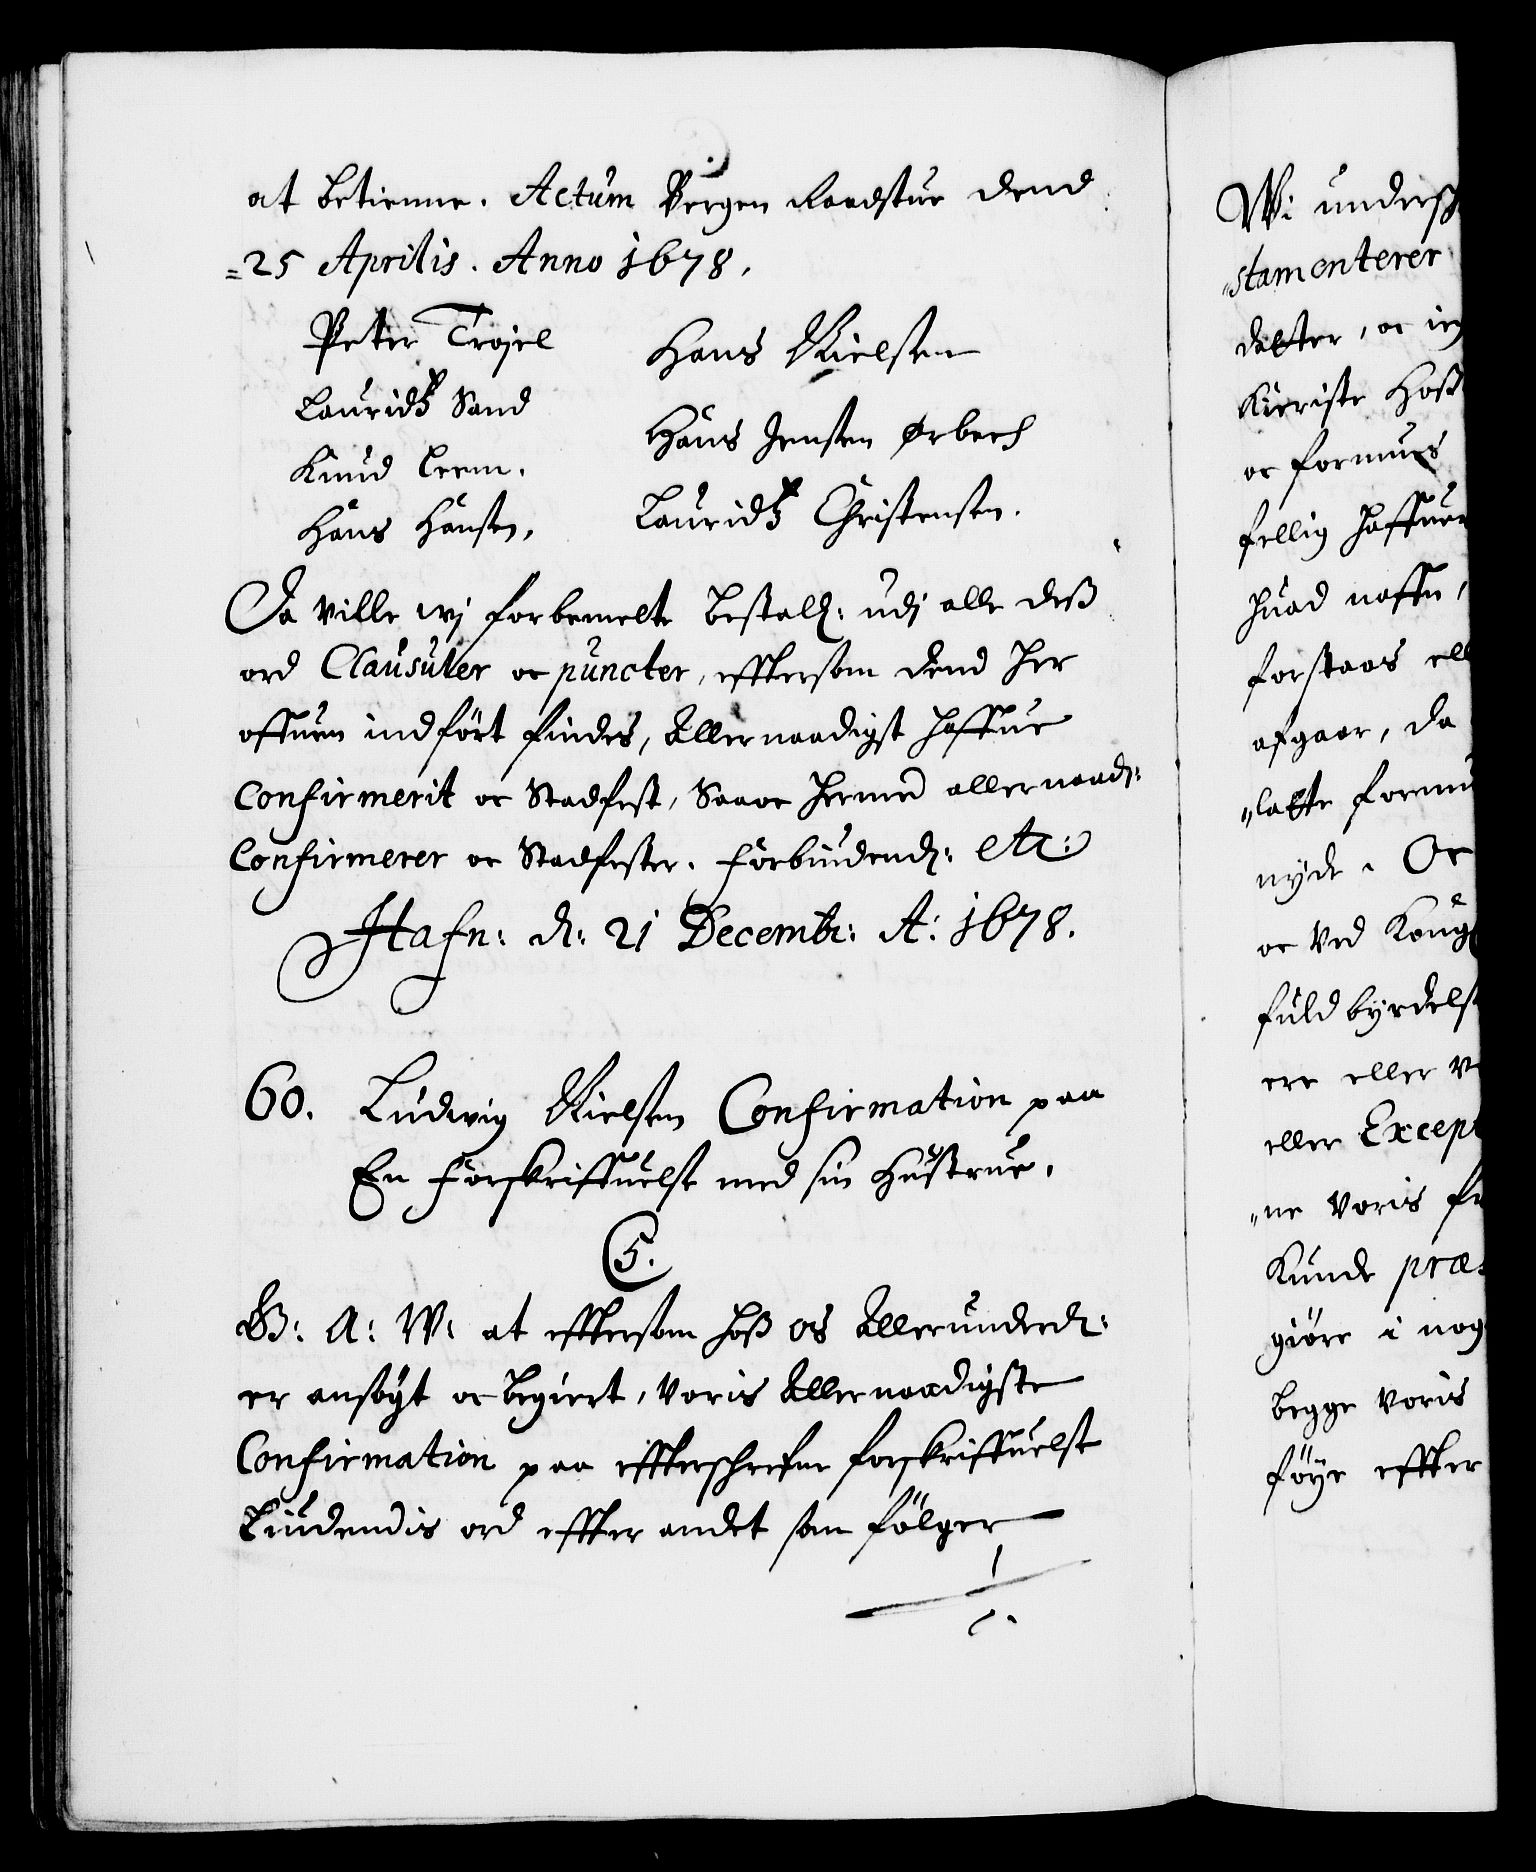 at betienne. Actum Bergen Raadstue dend
=25 Aprilis. Anno 1678.
Peter Trojel
Lauridtz Sand
Knud Leem.
Hans Hansen.
Hans Nielsen
Hans Jensen Ørbech
Lauridtz Christensen.
Da ville wj forbemelte bestall: udj alle dess
ord Clausuler oc puncter, efftersom dend her
offuen indført findes, Allernaadigst haffue
Confirmerit oc Stadfest, Saaoc hermed allernaad:
Confirmerer oc Stadfester. Forbiudend: etc:
Hafn: d: 21 Decembr: A: 1678.
60. Ludwig Nielsen Confirmation paa
En Forskriffuelse med sin Hustrue.
C5.
G: A: W: at efftersom hoss os Allerunderd:
er ansøgt oc begiert, Voris Allernaadigste
Confirmation paa effterschrefne forskriffuelse
Liudendis ord effter andet som følger
Wi undersc
"stamenterer
datter, oc ieg
Kieriste Hoss
oc formues
fellig haffuer
huad naffn,
forstaas ell
afgaar, da
"latte formu
nyde. Oc
oc Ved Kong
fuldbyrdelse
ere eller v
eller Except
"ne Voris fr
Kunde præ
giøre i nog
begge Voris
føye effter